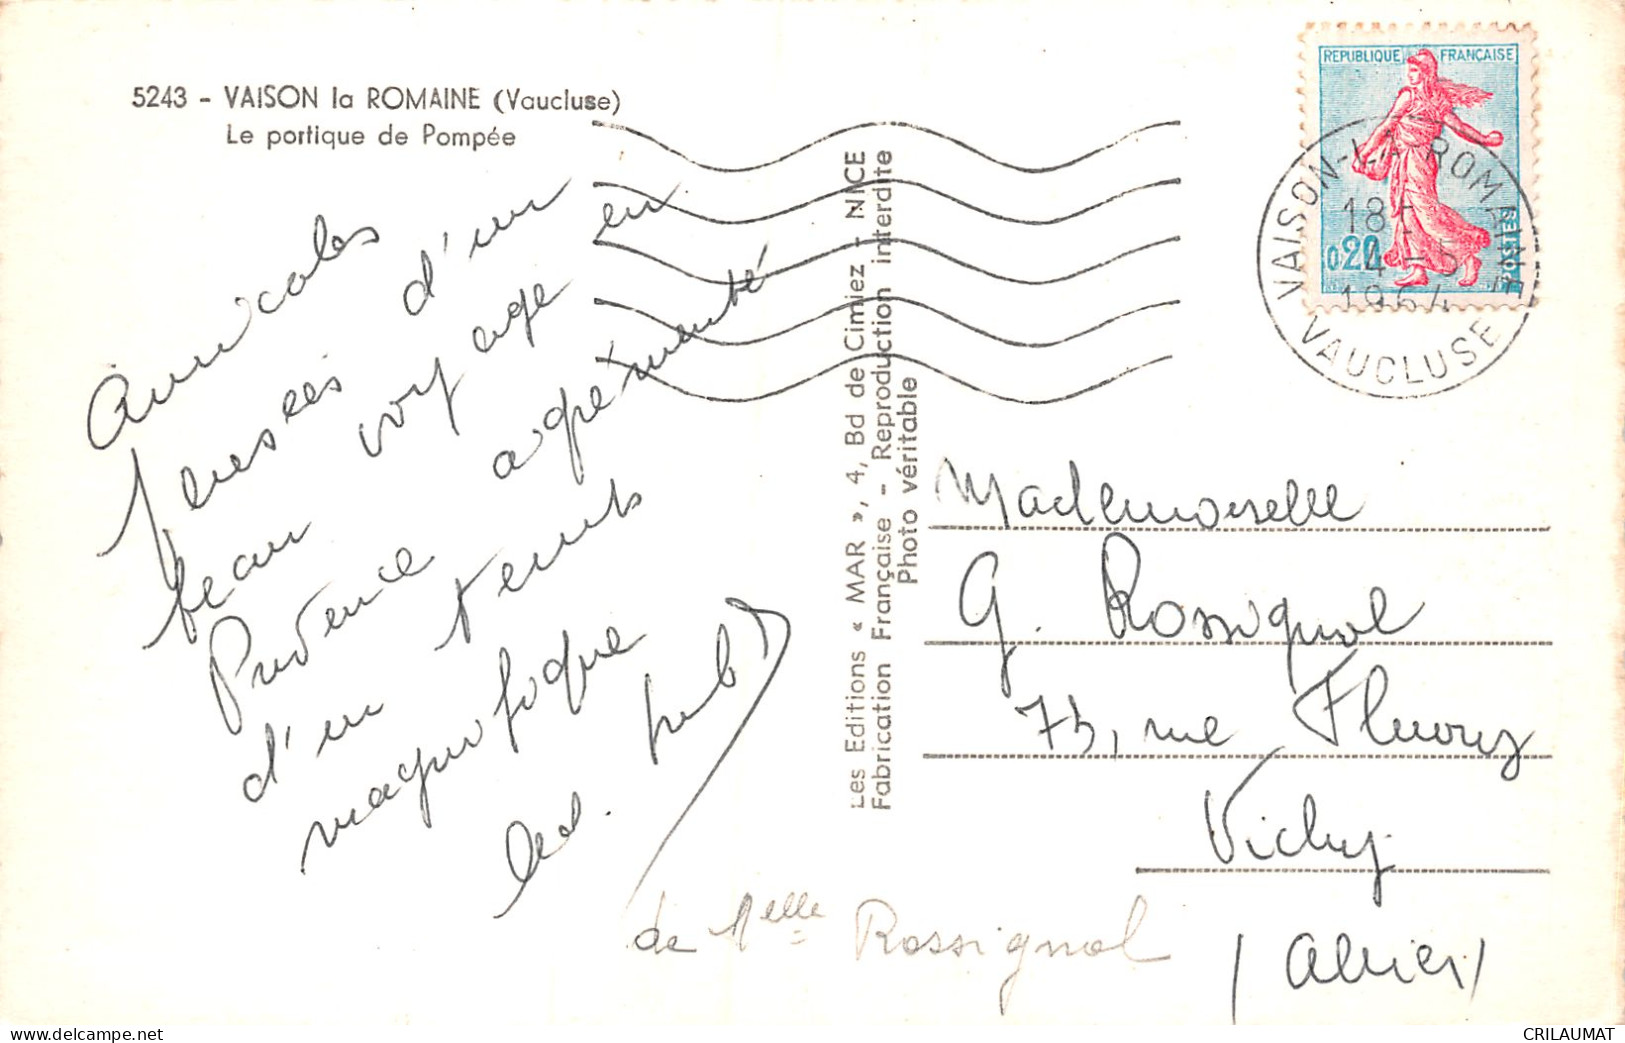 5243 - VAISON la ROMAINE (Vaucluse)
Le portique de Pompée
Amicales
pensées d'un
beau voyage en
Provence agrémenté
d'un temps
magnifique
Les Editions « MAR », 4, Bd de Cimiez - NICE
Fabrication Française - Reproduction interdite
Photo véritable
REPUBLIQUE FRANÇAISE
0,20
POSTES
VAISON-LA-ROMAINE
18H
4-5
1964
VAUCLUSE
Mademoiselle
G. Rossignol
75, rue Fleury
Vichy
(Allier)
de Melle Rossignol
delcampe.net
CRILAUMAT